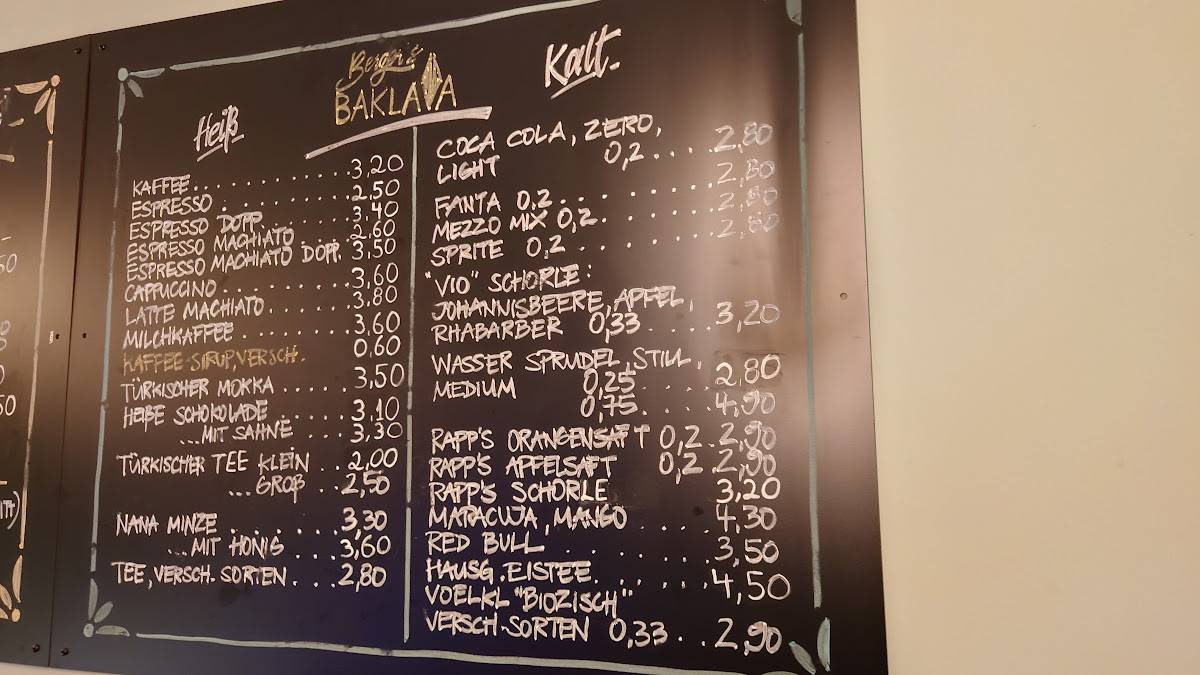 Berger's
BAKLAVA
Heiß
KAFFEE..........3,20
ESPRESSO..........2,50
ESPRESSO DOPP.......3,40
ESPRESSO MACHIATO....2,60
ESPRESSO MACHIATO DOPP. 3,50
CAPPUCCINO..........3,60
LATTE MACHIATO.......3,80
MILCHKAFFEE........3,60
KAFFEE-SIRUP, VERSCH. 0,60
TÜRKISCHER MOKKA.....3,50
HEIßE SCHOKOLADE....3,10
...MIT SAHNE...3,30
TÜRKISCHER TEE KLEIN..2,00
...GROß..2,50
NANA MINZE.......3,30
...MIT HONIG...3,60
TEE, VERSCH. SORTEN...2,80
Kalt.
COCA COLA, ZERO,
LIGHT 0,2....2,80
FANTA 0,2.........2,80
MEZZO MIX 0,2.......2,80
SPRITE 0,2.......2,80
"VIO" SCHORLE:
JOHANNISBEERE, APFEL,
RHABARBER 0,33.....3,20
WASSER SPRUDEL, STILL,
MEDIUM 0,25.....2,80
0,75....4,90
RAPP'S ORANGENSAFT 0,2.2,90
RAPP'S APFELSAFT 0,2.2,90
RAPP'S SCHORLE 3,20
MARACUJA, MANGO....4,30
RED BULL.......3,50
HAUSG. EISTEE......4,50
VOELKL "BIOZISCH"
VERSCH. SORTEN 0,33..2,90